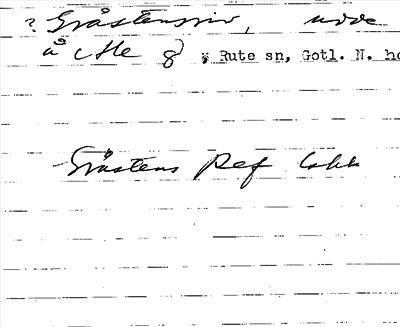 ? Gråstensriv, udde
å Ale 8 Rute sn, Gotl. N. h
Gråstens Ref